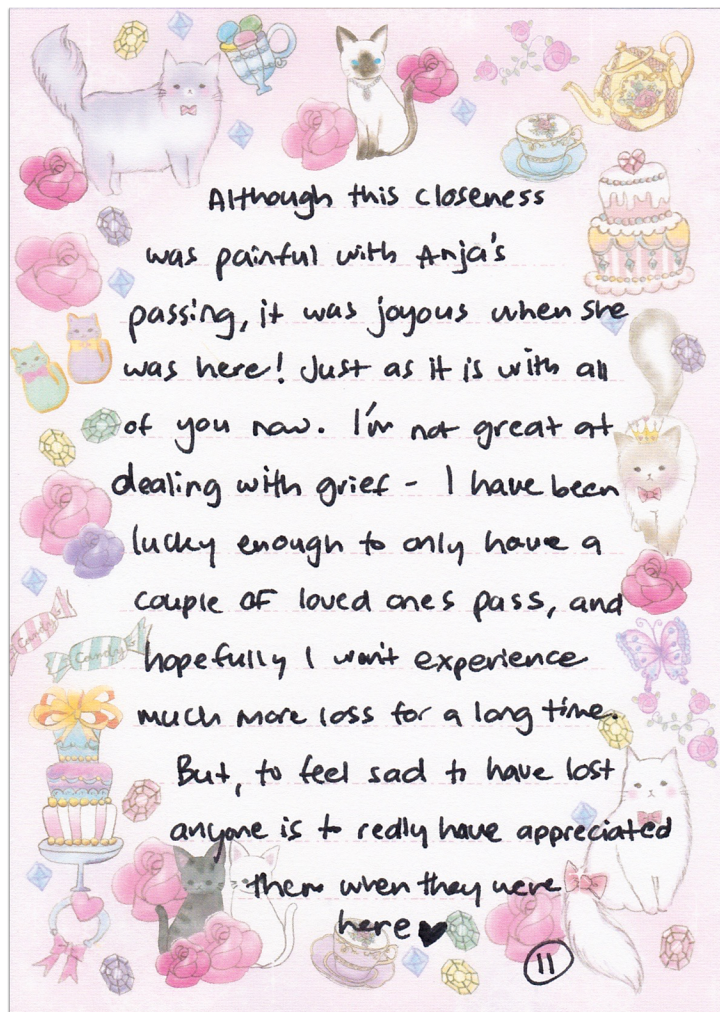 Although this closeness
was painful with Anja's
passing, it was joyous when she
was here! Just as it is with all
of you now. I'm not great at
dealing with grief - I have been
lucky enough to only have a
couple of loved ones pass, and
hopefully I won't experience
much more loss for a long time.
But, to feel sad to have lost
anyone is to really have appreciated
them when they were
here ♥
11
Candy
Candy